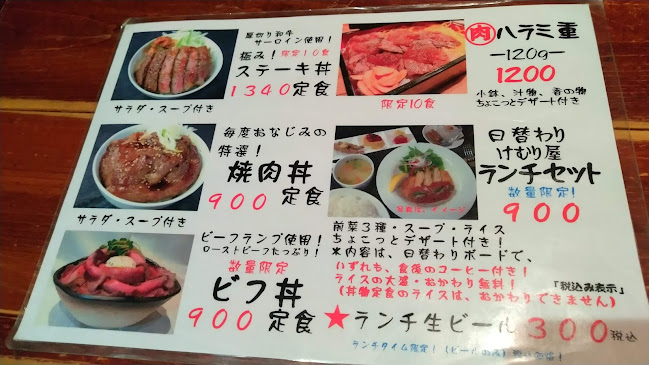 厚切り和牛
サーロイン使用！
極み！限定10食
ステーキ丼
1340定食
サラダ・スープ付き
肉 ハラミ重
ー120gー
1200
小鉢、汁物、香の物
ちょこっとデザート付き
限定10食
毎度おなじみの
特選！
焼肉丼
900定食
サラダ・スープ付き
日替わり
けむり屋
ランチセット
数量限定！
900
写真は、イメージ
前菜3種・スープ・ライス
ちょこっとデザート付き！
※内容は、日替わりボードで、
いずれも、食後のコーヒー付き！
ライスの大盛・おかわり無料！
(丼物定食のライスは、おかわりできません)
『税込み表示』
ビーフランプ使用！
ローストビーフたっぷり！
数量限定
ビフ丼
900定食
★ランチ生ビール300税込
ランチタイム限定！